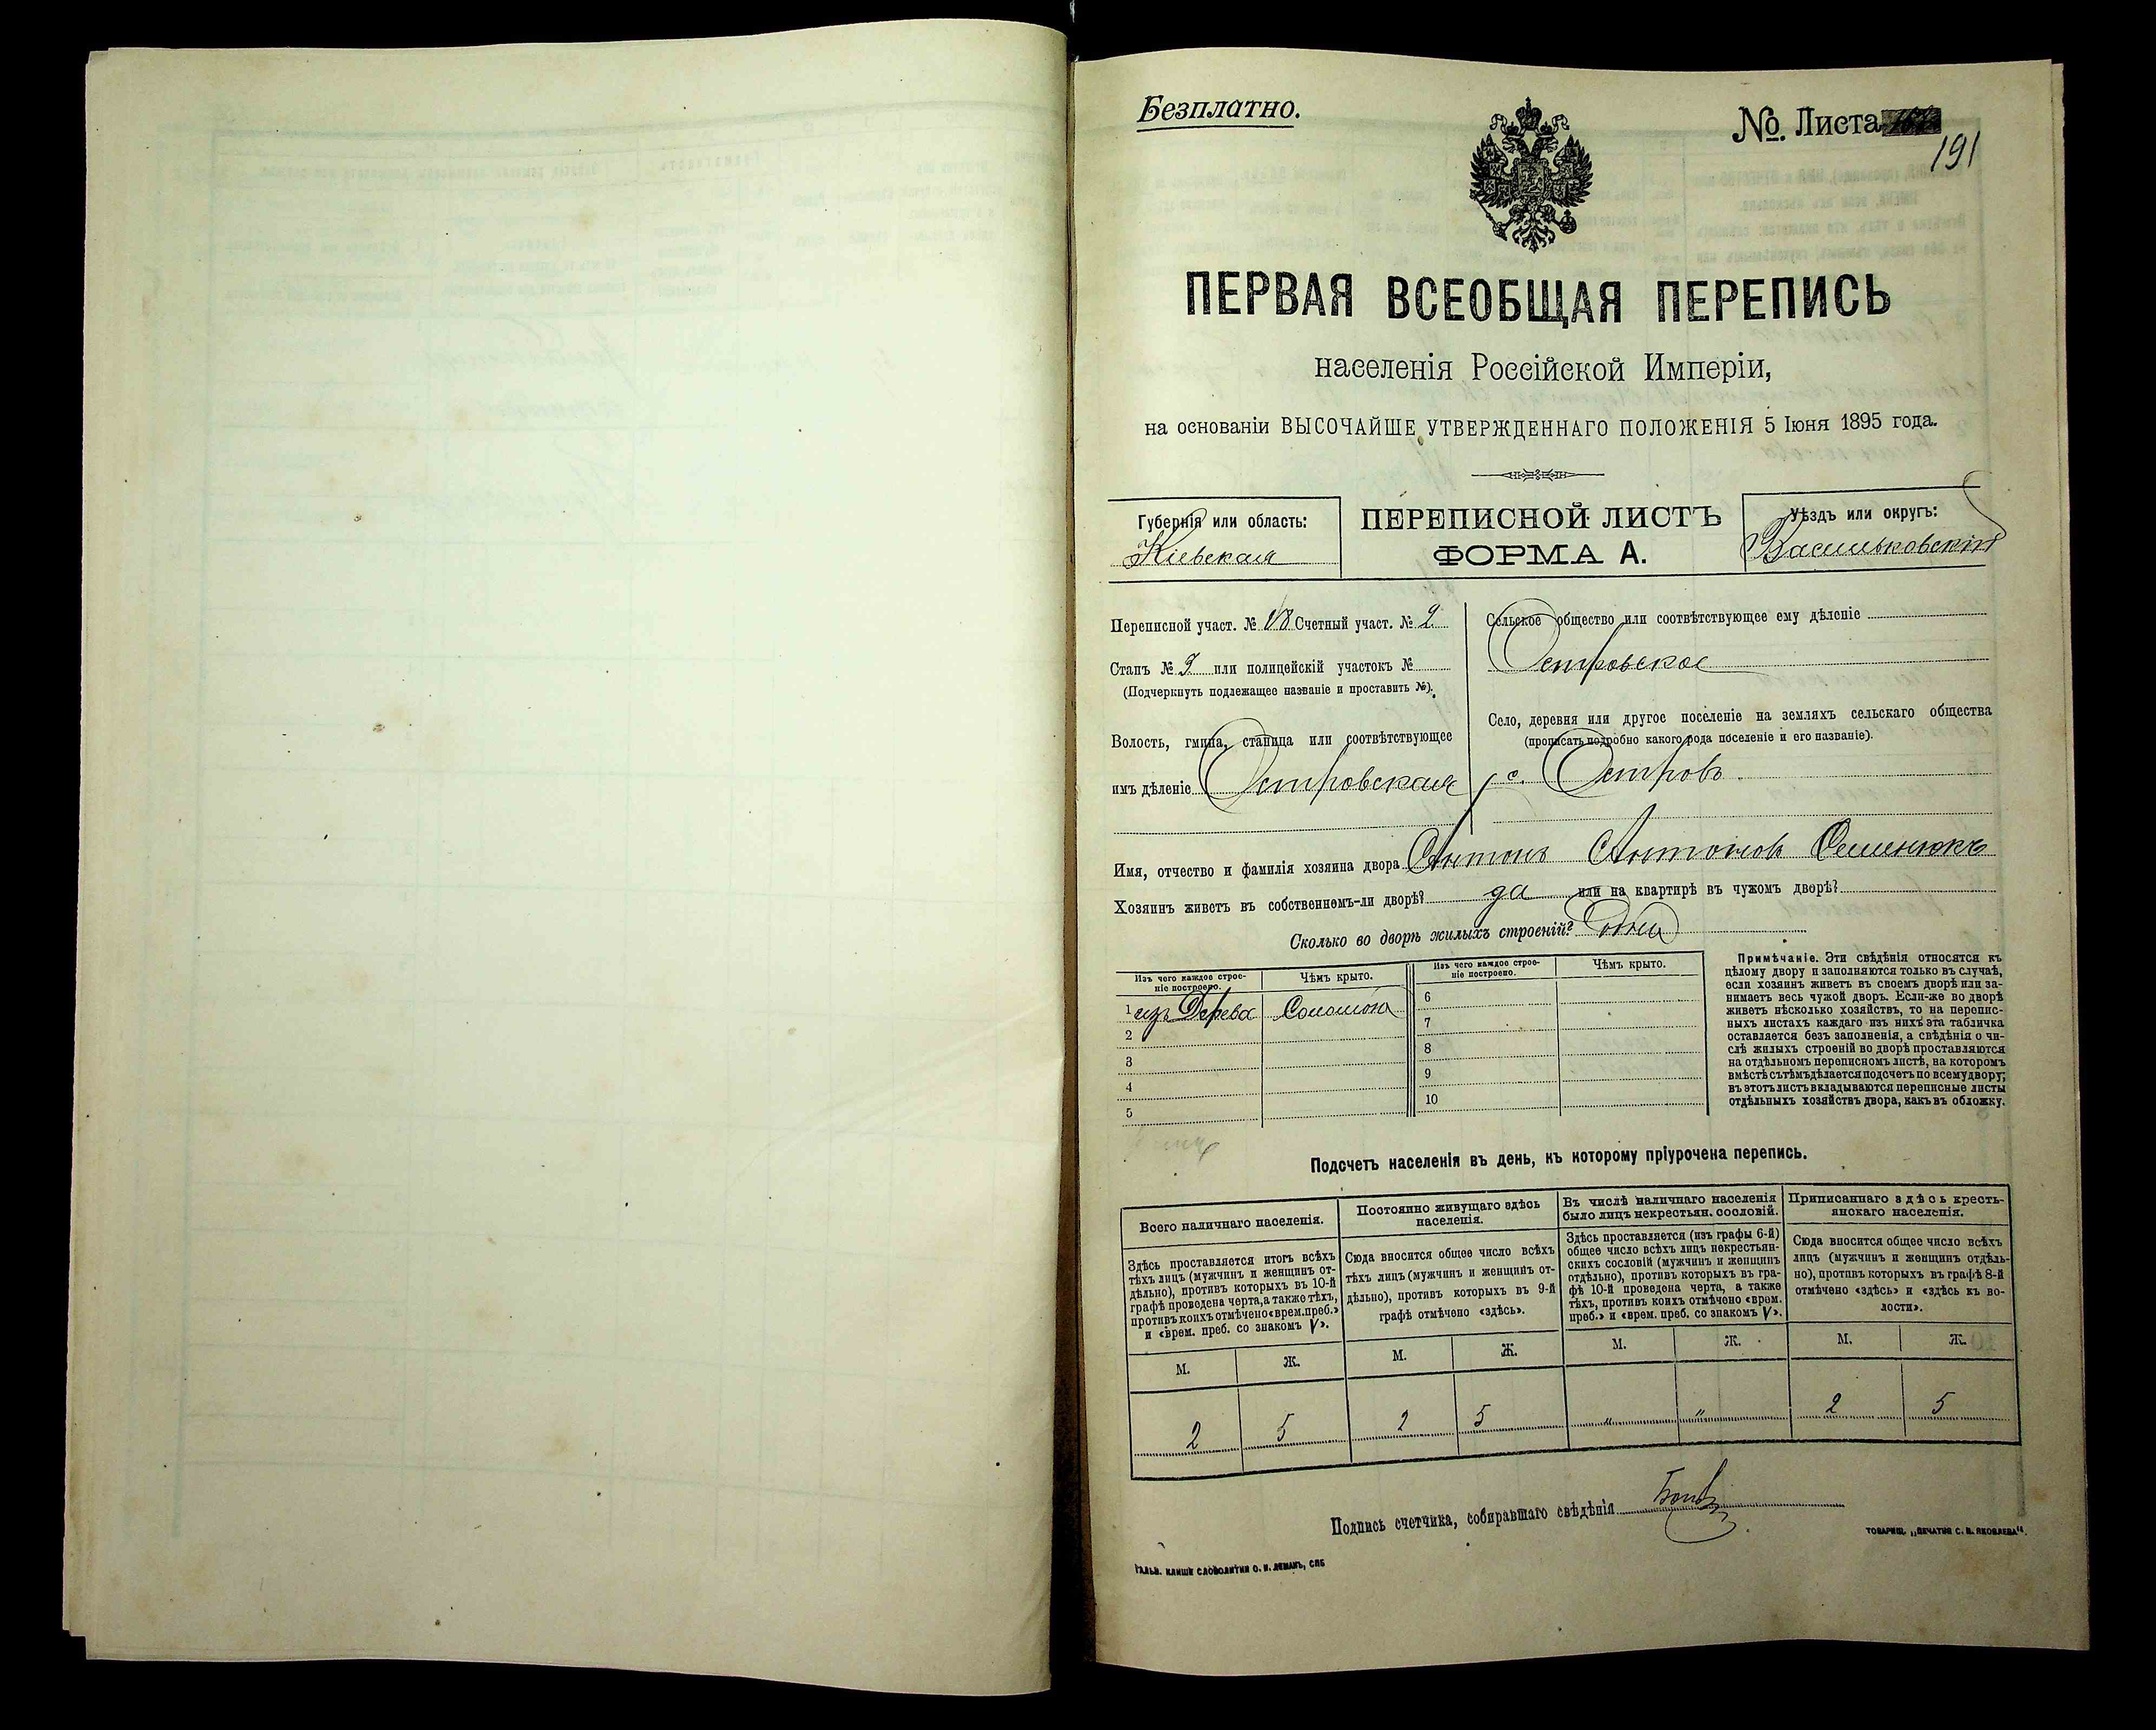 Безплатно.
№ Листа
191
ПЕРВАЯ ВСЕОБЩАЯ ПЕРЕПИСЬ
населенія Россійской Имперіи,
на основаніи ВЫСОЧАЙШЕ УТВЕРЖДЕННАГО ПОЛОЖЕНІЯ 5 Іюня 1895 года.
Губернія или область:
Кіевская
ПЕРЕПИСНОЙ ЛИСТЪ
ФОРМА А.
Уѣздъ или округъ:
Васильковскій
Переписной участ. № 18 Счетный участ. № 2
Станъ № 3 или полицейскій участокъ №
(Подчеркнуть подлежащее названіе и проставить №).
Волость, гмина, станица или соотвѣтствующее
имъ дѣленіе Островская
Сельское общество или соотвѣтствующее ему дѣленіе
Островское
Село, деревня или другое поселеніе на земляхъ сельскаго общества
(прописать подробно какого рода поселеніе и его названіе).
с. Островъ
Имя, отчество и фамилія хозяина двора Антонъ Антоновъ Семенюкъ
Хозяинъ живетъ въ собственномъ-ли дворѣ? да или на квартирѣ въ чужомъ дворѣ?
Сколько во дворѣ жилыхъ строеній? одна
Изъ чего каждое строе-
ніе построено.
Чѣмъ крыто.
1 изъ Дерева Соломою
2
3
4
5
Изъ чего каждое строе-
ніе построено.
Чѣмъ крыто.
6
7
8
9
10
Примѣчаніе. Эти свѣдѣнія относятся къ
цѣлому двору и заполняются только въ случаѣ,
если хозяинъ живетъ въ своемъ дворѣ или за-
нимаетъ весь чужой дворъ. Если-же во дворѣ
живетъ нѣсколько хозяйствъ, то на перепис-
ныхъ листахъ каждаго изъ нихъ эта табличка
оставляется безъ заполненія, а свѣдѣнія о чи-
слѣ жилыхъ строеній во дворѣ проставляются
на отдѣльномъ переписномъ листѣ, на которомъ
вмѣстѣ съ тѣмъ дѣлается подсчетъ по всему двору;
въ этотъ листъ вкладываются переписные листы
отдѣльныхъ хозяйствъ двора, какъ въ обложку.
Подсчетъ населенія въ день, къ которому пріурочена перепись.
Всего наличнаго населенія.
Здѣсь проставляется итогъ всѣхъ
тѣхъ лицъ (мужчинъ и женщинъ от-
дѣльно), противъ которыхъ въ 10-й
графѣ проведена черта, а также тѣхъ,
противъ коихъ отмѣчено «врем. преб.»
и «врем. преб. со знакомъ V».
М. Ж.
2 5
Постоянно живущаго здѣсь
населенія.
Сюда вносится общее число всѣхъ
тѣхъ лицъ (мужчинъ и женщинъ от-
дѣльно), противъ которыхъ въ 9-й
графѣ отмѣчено «здѣсь».
М. Ж.
2 5
Въ числѣ наличнаго населенія
было лицъ некрестьян. сословій.
Здѣсь проставляется (изъ графы 6-й)
общее число всѣхъ лицъ некрестьян-
скихъ сословій (мужчинъ и женщинъ
отдѣльно), противъ которыхъ въ гра-
фѣ 10-й проведена черта, а также
тѣхъ, противъ коихъ отмѣчено «врем.
преб.» и «врем. преб. со знакомъ V».
М. Ж.
" "
Приписаннаго здѣсь кресть-
янскаго населенія.
Сюда вносится общее число всѣхъ
лицъ (мужчинъ и женщинъ отдѣль-
но), противъ которыхъ въ графѣ 8-й
отмѣчено «здѣсь» и «здѣсь въ во-
лости».
М. Ж.
2 5
Подпись счетчика, собиравшаго свѣдѣнія
ТОВАРИЩ. „ПЕЧАТНЯ С. П. ЯКОВЛЕВА".
ГАЛЬВ. КЛИШЕ СЛОВОЛИТНИ О. И. ЛЕМАНЪ, СПБ